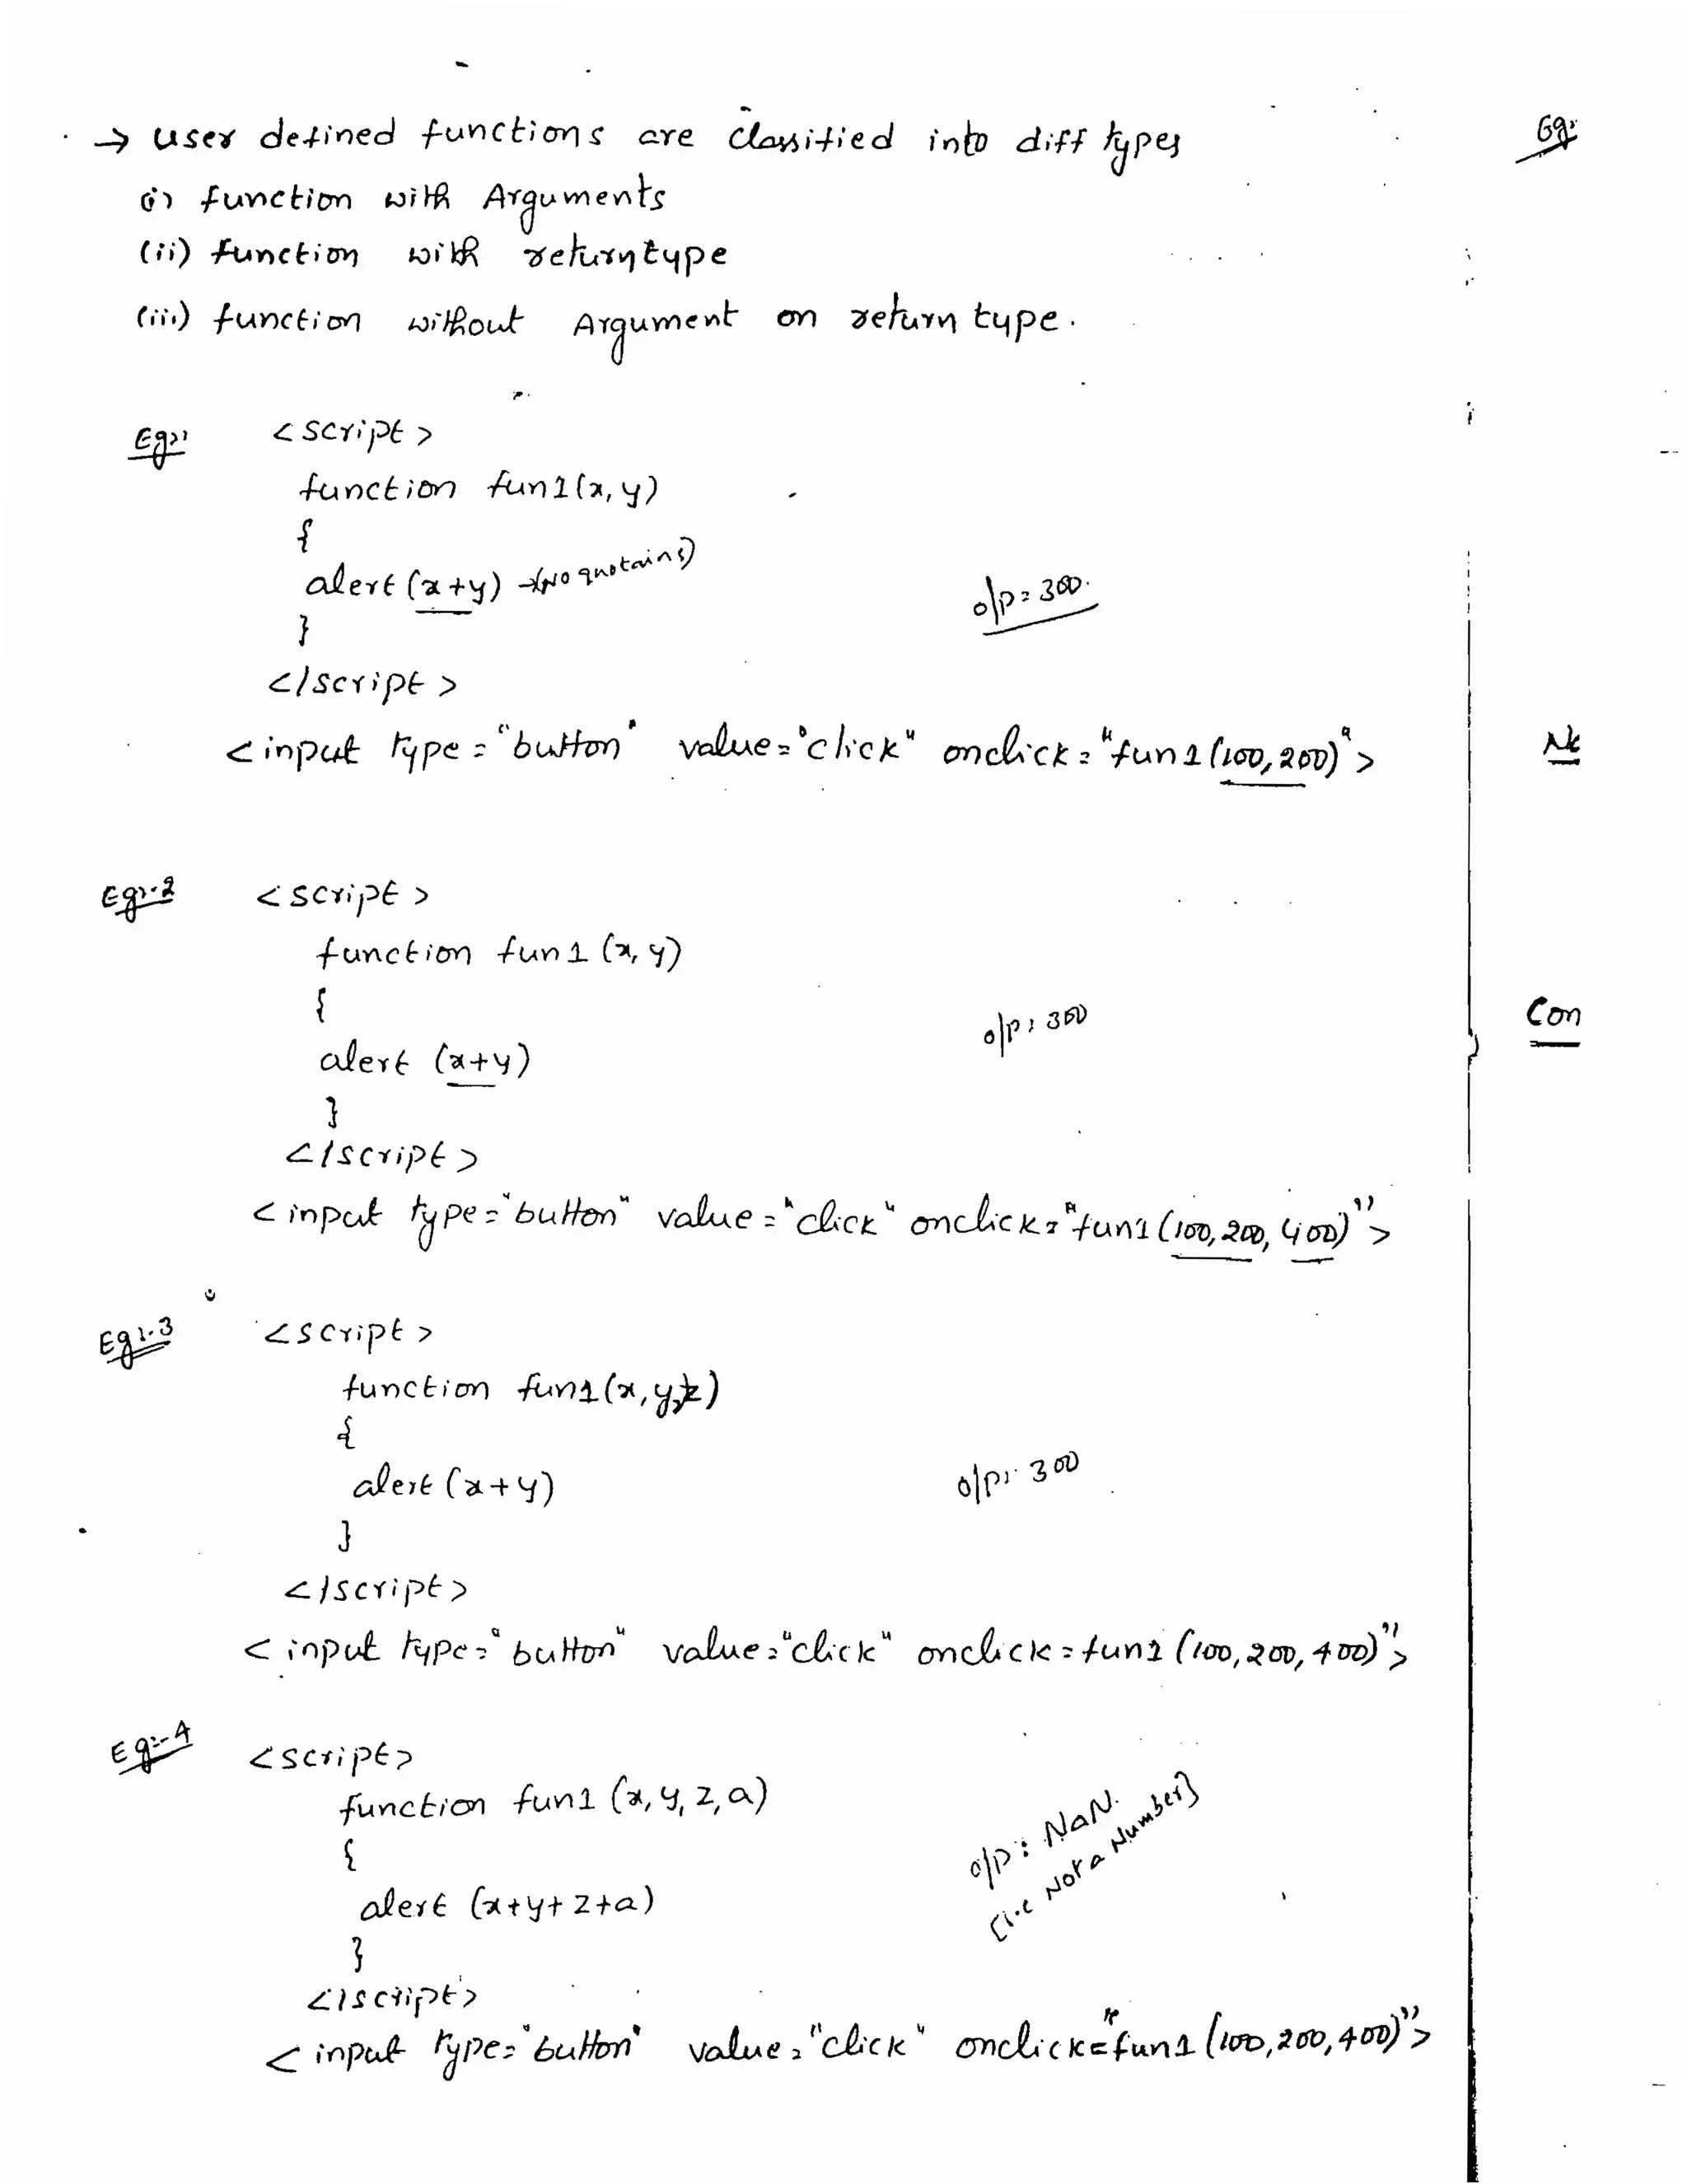 → User defined functions are classified into diff types
(i) function with Arguments
(ii) function with returntype
(iii) function without Argument on return type.
Eg:1
<script>
function fun1(x, y)
{
alert (x+y) →(No quotains)
}
</script>
o/p = 300.
<input type = "button" value = "click" onclick = "fun1(100, 200)">
Eg:-2
<script>
function fun1 (x, y)
{
alert (x+y)
}
</script>
o/p: 300
<input type = "button" value = "click" onclick = "fun1 (100, 200, 400)">
Eg:-3
<script>
function fun1(x, y, z)
{
alert (x+y)
}
</script>
o/p: 300
<input type = "button" value = "click" onclick = fun1 (100, 200, 400)">
Eg:-4
<script>
function fun1 (x, y, z, a)
{
alert (x+y+z+a)
}
</script>
o/p: NaN.
[i.e Not a Number]
<input type = "button" value = "click" onclick = "fun1 (100, 200, 400)">
Eg:
Con